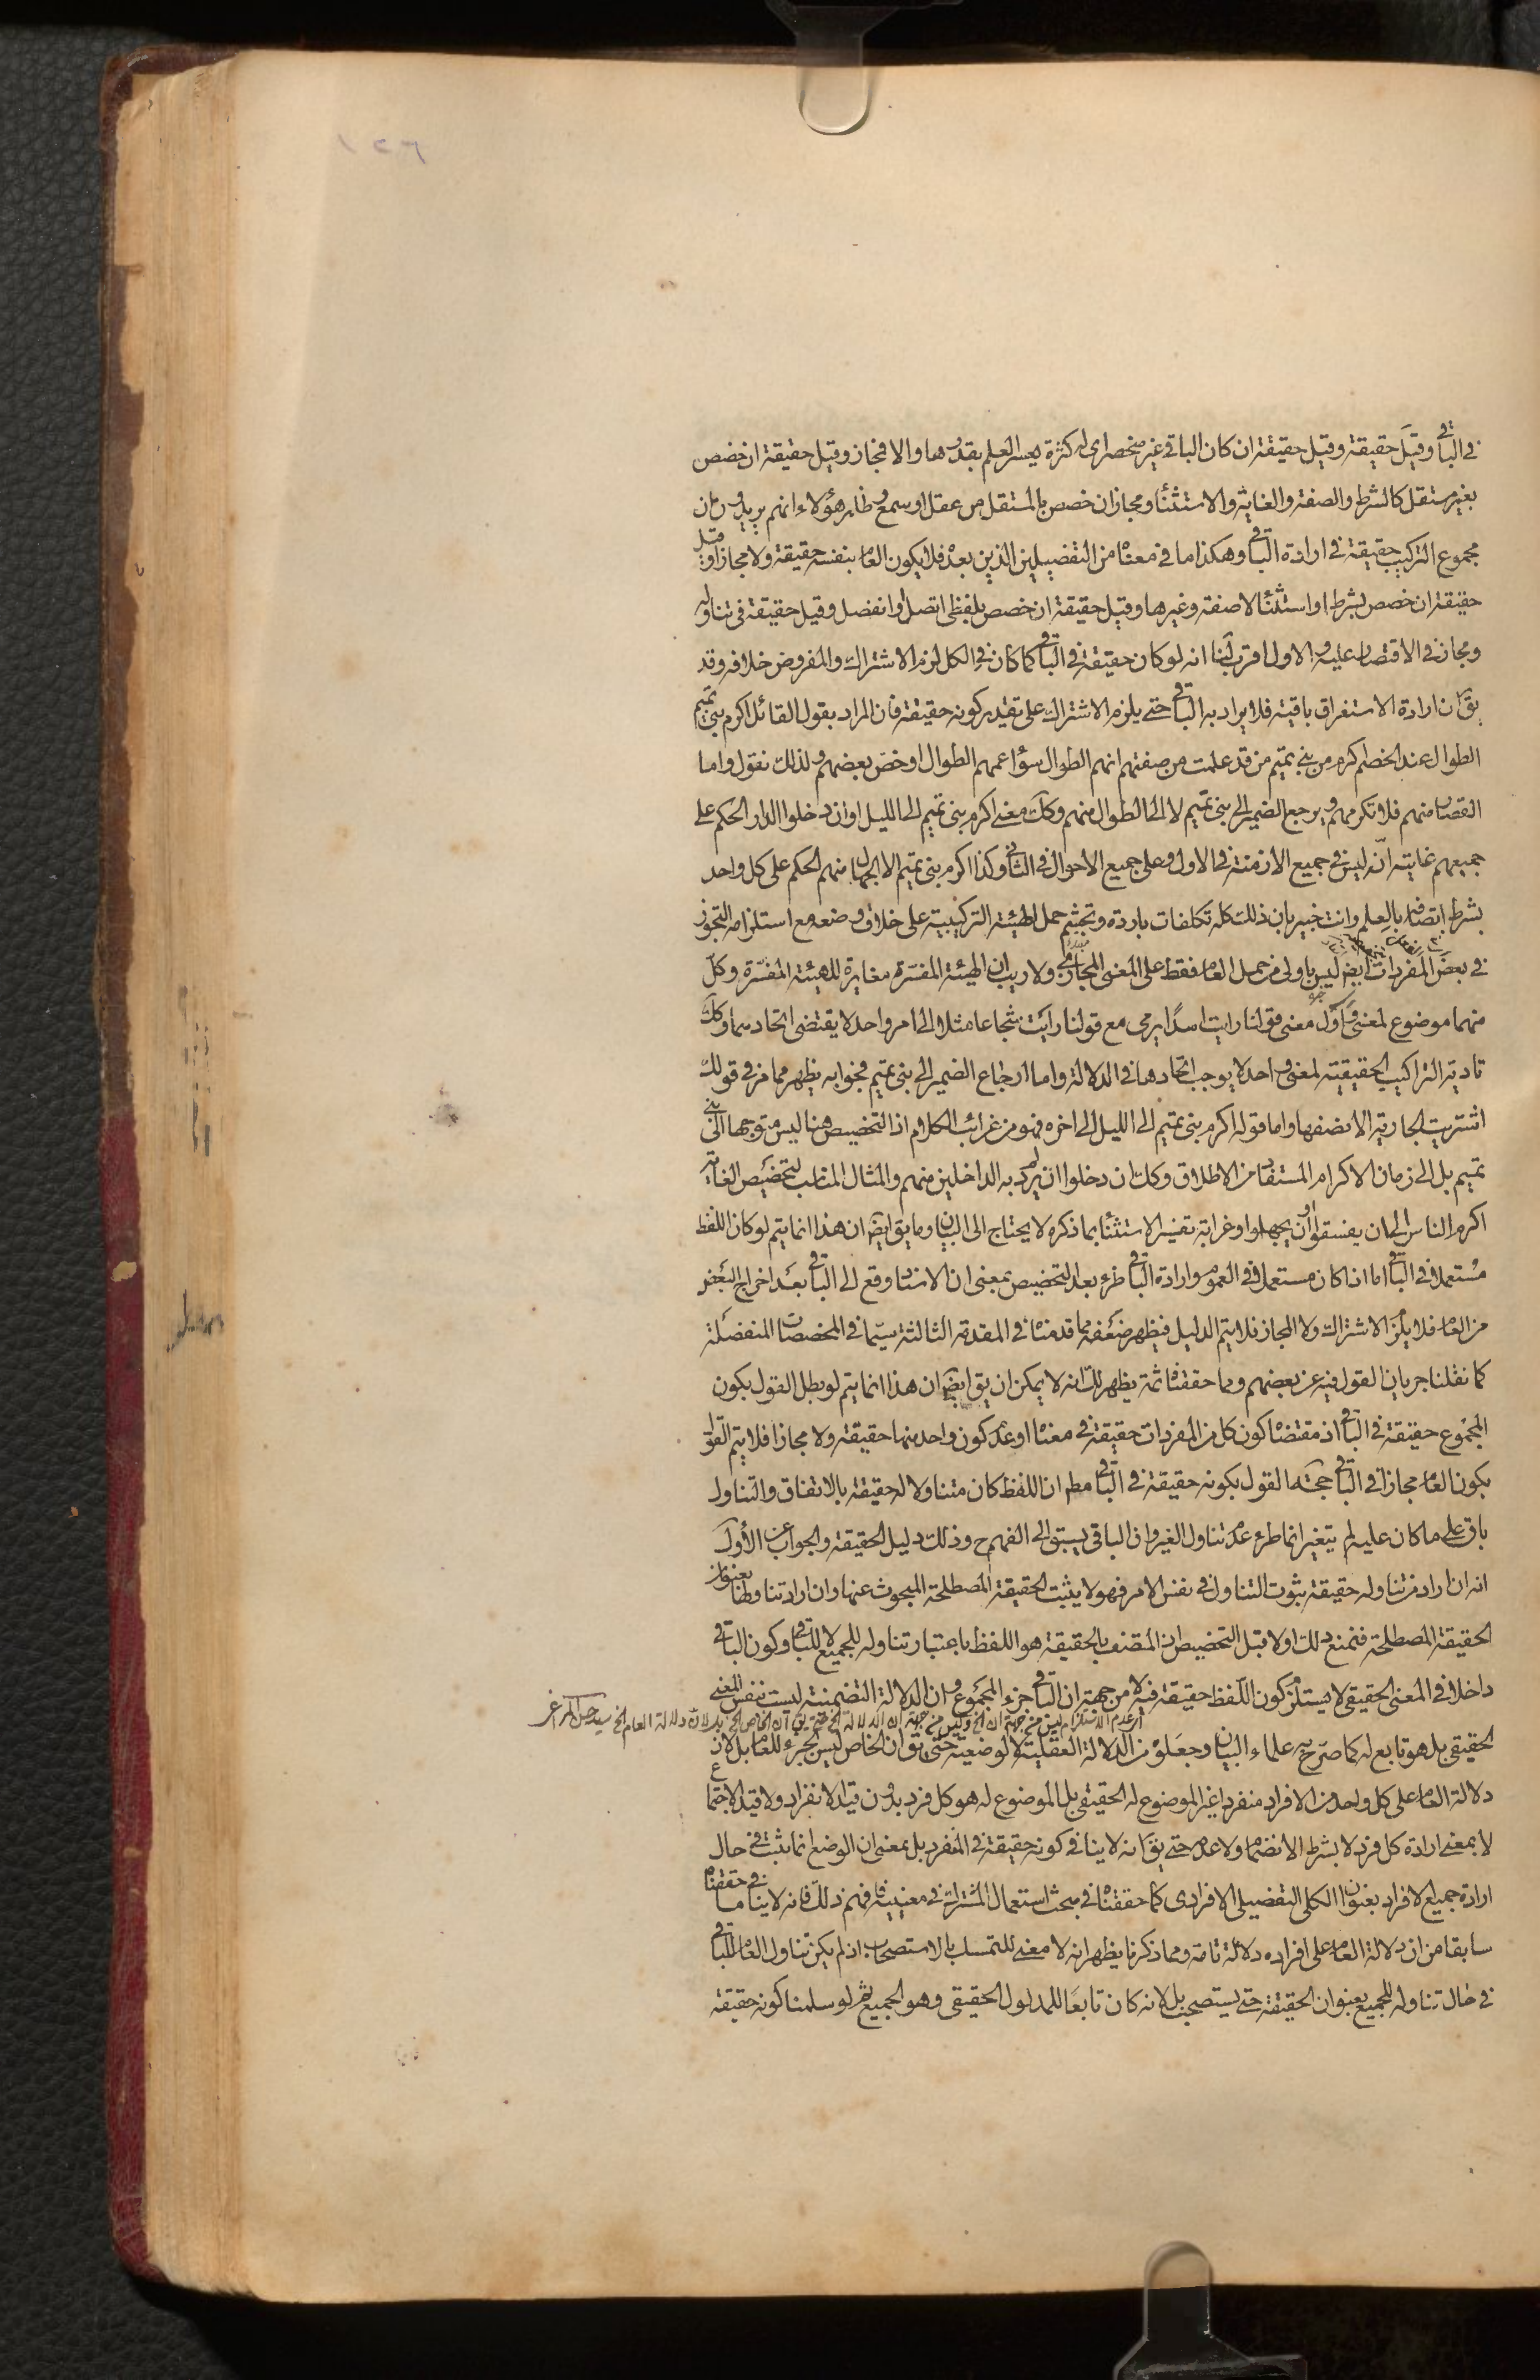 ١٢٦
في الباقي وقيل حقيقة وقيل حقيقة ان كان الباقي غير منحصر اى له كثرة يعسر العلم بقدرها والا فمجاز وقيل حقيقة ان خصص
بغير مستقل كالشرط والصفة والغاية والاستثناء ومجاز ان خصص بالمستقل من عقل او سمع وظاهر هؤلاء انهم يريدون ان
مجموع التركيب حقيقة في ارادة الباقي وهكذا ما في معناه من التفصيلين الذين بعده فلا يكون العام بنفسه حقيقة ولا مجازا وقيل
حقيقة ان خصص بشرط او استثناء لا صفة وغيرها وقيل حقيقة ان خصص بلفظي اتصل او انفصل وقيل حقيقة في تناوله
ومجاز في الاقتصار عليه والاول اقرب لنا انه لو كان حقيقة في الباقي كما كان في الكل لزم الاشتراك والمفروض خلافه وقد
يق ان ارادة الاستغراق باقية فلا يراد به الباقي حتى يلزم الاشتراك على تقدير كونه حقيقة فان المراد بقول القائل اكرم بني تميم
الطوال عند الخصم اكرم من بني تميم من قد علمت من صفتهم انهم الطوال سواء عمهم الطوال او خص بعضهم ولذلك نقول واما
القصار منهم فلا تكرمهم ويرجع الضمير الى بني تميم لا الى الطوال منهم وكك معنى اكرم بني تميم الى الليل او ان دخلوا الدار الحكم على
جميعهم غايته انه ليس في جميع الازمنة في الاول وعلى جميع الاحوال في الثاني وكذا اكرم بني تميم الا الجهال منهم الحكم على كل واحد
بشرط اتصافه بالعلم وانت خبير بان ذلك كله تكلفات باردة وتجشم حمل الهيئة التركيبية على خلاف وضعه مع استلزامه التجوز
في بعض المفردات ايض ليس باولى من حمل العام فقط على المعنى المجازي ولا ريب ان الهيئة المفسرة مغايرة للهيئة المفسرة وكل
منهما موضوع لمعنى معنى قولنا رايت اسدا يرمي مع قولنا رايت شجاعا مثلا الى امر واحد لا يقتضي اتحادهما وكك
تادية التراكيب الحقيقية لمعنى واحد لا يوجب اتحادها في الدلالة واما ارجاع الضمير الى بني تميم فجوابه يظهر مما مر في قولك
اشتريت الجارية الا نصفها واما قوله اكرم بني تميم الى الليل الى اخره فهو من غرائب الكلام اذ التخصيص هنا ليس متوجها الى بني
تميم بل الى زمان الاكرام المستفاد من الاطلاق وكك ان دخلوا ان لم يرد به الداخلين منهم والمثال المناسب لتخصيص الغاية
اكرم الناس الى ان يفسقوا او ان يجهلوا وغرابة تفسير الاستثناء بما ذكره لا يحتاج الى البيان وما يق ايض ان هذا انما يتم لو كان اللفظ
مستعملا في الباقي اما اذا كان مستعملا في العموم وارادة الباقي طرء بعد التخصيص بمعنى ان الاسناد وقع الى الباقي بعد اخراج البعض
من العام فلا يلزم الاشتراك ولا المجاز فلا يتم الدليل فيظهر ضعفه مما قدمناه في المقدمة الثالثة سيما في المخصصات المنفصلة
كما نقلنا جريان القول فيه عن بعضهم ومما حققناه ثمة يظهر لك انه لا يمكن ان يق ايض ان هذا انما يتم لو بطل القول بكون
المجموع حقيقة في الباقي اذ مقتضاه كون كل من المفردات حقيقة في معناه او عدم كون واحد منها حقيقة ولا مجازا فلا يتم القول
بكون العام مجازا في الباقي حجة القول بكونه حقيقة في الباقي مطم ان اللفظ كان متناولا له حقيقة بالاتفاق والتناول
باق على ما كان عليه لم يتغير انما طرء عدم تناول الغير وان الباقي يسبق الى الفهم ح وذلك دليل الحقيقة والجواب عن الاول
انه ان اراد من تناوله حقيقة ثبوت التناول في نفس الامر فهو لا يثبت الحقيقة المصطلحة المبحوث عنها وان اراد تناولها بعنوان
الحقيقة المصطلحة فنمنع ذلك اولا قبل التخصيص ان المتصف بالحقيقة هو اللفظ باعتبار تناوله للجميع لا للباقي وكون الباقي
داخلا في المعنى الحقيقي لا يستلزم كون اللفظ حقيقة فيه لا من جهة ان الباقي جزء المجموع وان الدلالة التضمنية ليست نفس المعنى
الحقيقي بل هو تابع له كما صرح به علماء البيان وجعلوه من الدلالة العقلية لا الوضعية حتى يق ان الخاص ليس بجزء للعام بل لان
دلالة العام على كل واحد من الافراد منفردا غير الموضوع له الحقيقي بل الموضوع له هو كل فرد بدون قيد الانفراد ولا قيد الاجتماع
لا بمعنى ارادة كل فرد لا بشرط الانضمام ولا عدمه حتى يق انه لا ينافي كونه حقيقة في المنفرد بل بمعنى ان الوضع انما يثبت في حال
ارادة جميع الافراد بعنوان الكلي التفصيلي الافرادى كما حققناه في مبحث استعمال المشترك في معنييه فافهم ذلك فانه لا ينافي ما حققناه
سابقا من ان دلالة العام على افراده دلالة تامة ومما ذكرنا يظهر انه لا معنى للتمسك بالاستصحاب اذ لم يكن تناول العام للباقي
في حال تناوله للجميع بعنوان الحقيقة حتى يستصحب بل لانه كان تابعا للمدلول الحقيقي وهو الجميع ثم لو سلمنا كونه حقيقة